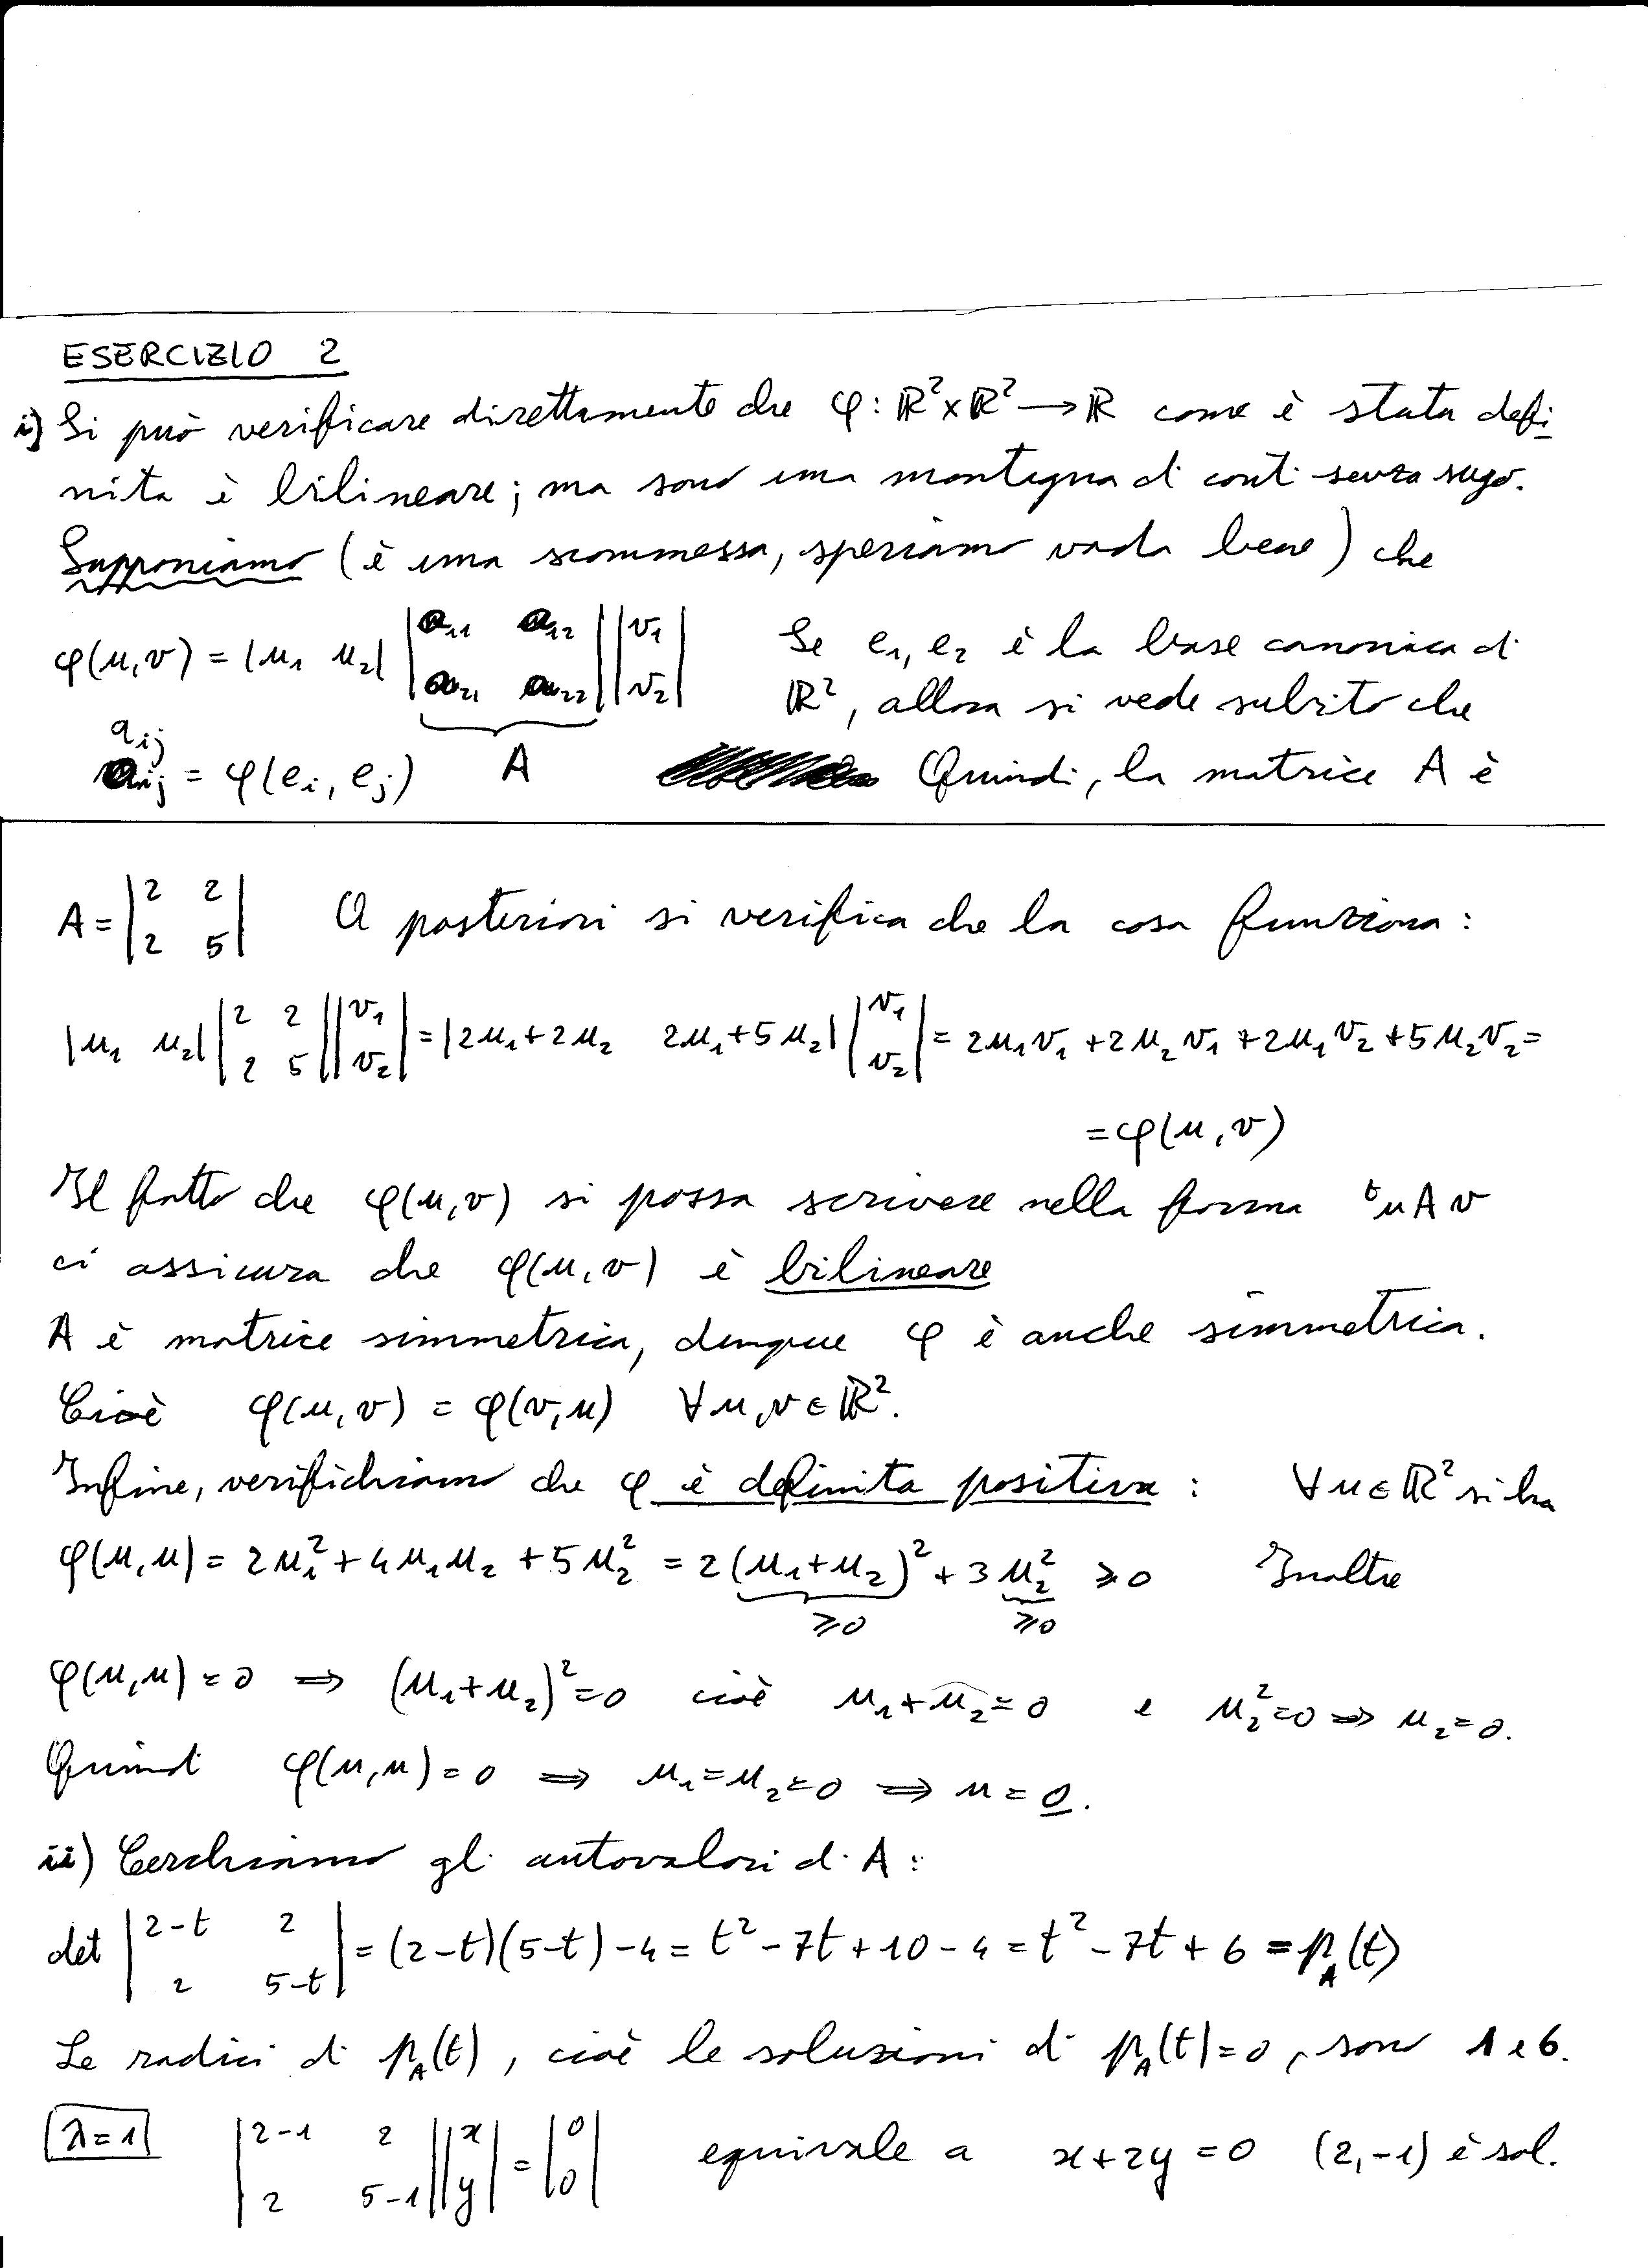 ESERCIZIO 2
i) Si può verificare direttamente che φ: ℝ²×ℝ² → ℝ come è stata defi
nita è bilineare; ma sono una montagna di conti senza sugo.
Supponiamo (è una scommessa, speriamo vada bene) che
φ(u,v) = |u₁ u₂| |a₁₁ a₁₂; a₂₁ a₂₂| |v₁; v₂| Se e₁, e₂ è la base canonica di
ℝ², allora si vede subito che
aᵢⱼ
aᵢⱼ = φ(eᵢ, eⱼ) A Quindi, la matrice A è
A = |2 2; 2 5| A posteriori si verifica che la cosa funziona:
|u₁ u₂| |2 2; 2 5| |v₁; v₂| = |2u₁+2u₂ 2u₁+5u₂| |v₁; v₂| = 2u₁v₁ + 2u₂v₁ + 2u₁v₂ + 5u₂v₂ =
= φ(u,v)
Il fatto che φ(u,v) si possa scrivere nella forma ᵗuAv
ci assicura che φ(u,v) è bilineare
A è matrice simmetrica, dunque φ è anche simmetrica.
Cioè φ(u,v) = φ(v,u) ∀u,v ∈ ℝ².
Infine, verifichiamo che φ è definita positiva: ∀u ∈ ℝ² si ha
φ(u,u) = 2u₁² + 4u₁u₂ + 5u₂² = 2(u₁+u₂)² + 3u₂² ⩾ 0 Inoltre
⩾0 ⩾0
φ(u,u) = 0 ⟹ (u₁+u₂)² = 0 cioè u₁+u₂ = 0 e u₂² = 0 ⟹ u₂ = 0.
Quindi φ(u,u) = 0 ⟹ u₁ = u₂ = 0 ⟹ u = 0.
ii) Cerchiamo gli autovalori di A:
det |2-t 2; 2 5-t| = (2-t)(5-t) - 4 = t² - 7t + 10 - 4 = t² - 7t + 6 = p_A(t)
Le radici di p_A(t), cioè le soluzioni di p_A(t) = 0, sono 1 e 6.
λ=1 |2-1 2; 2 5-1| |x; y| = |0; 0| equivale a x+2y = 0 (2,-1) è sol.